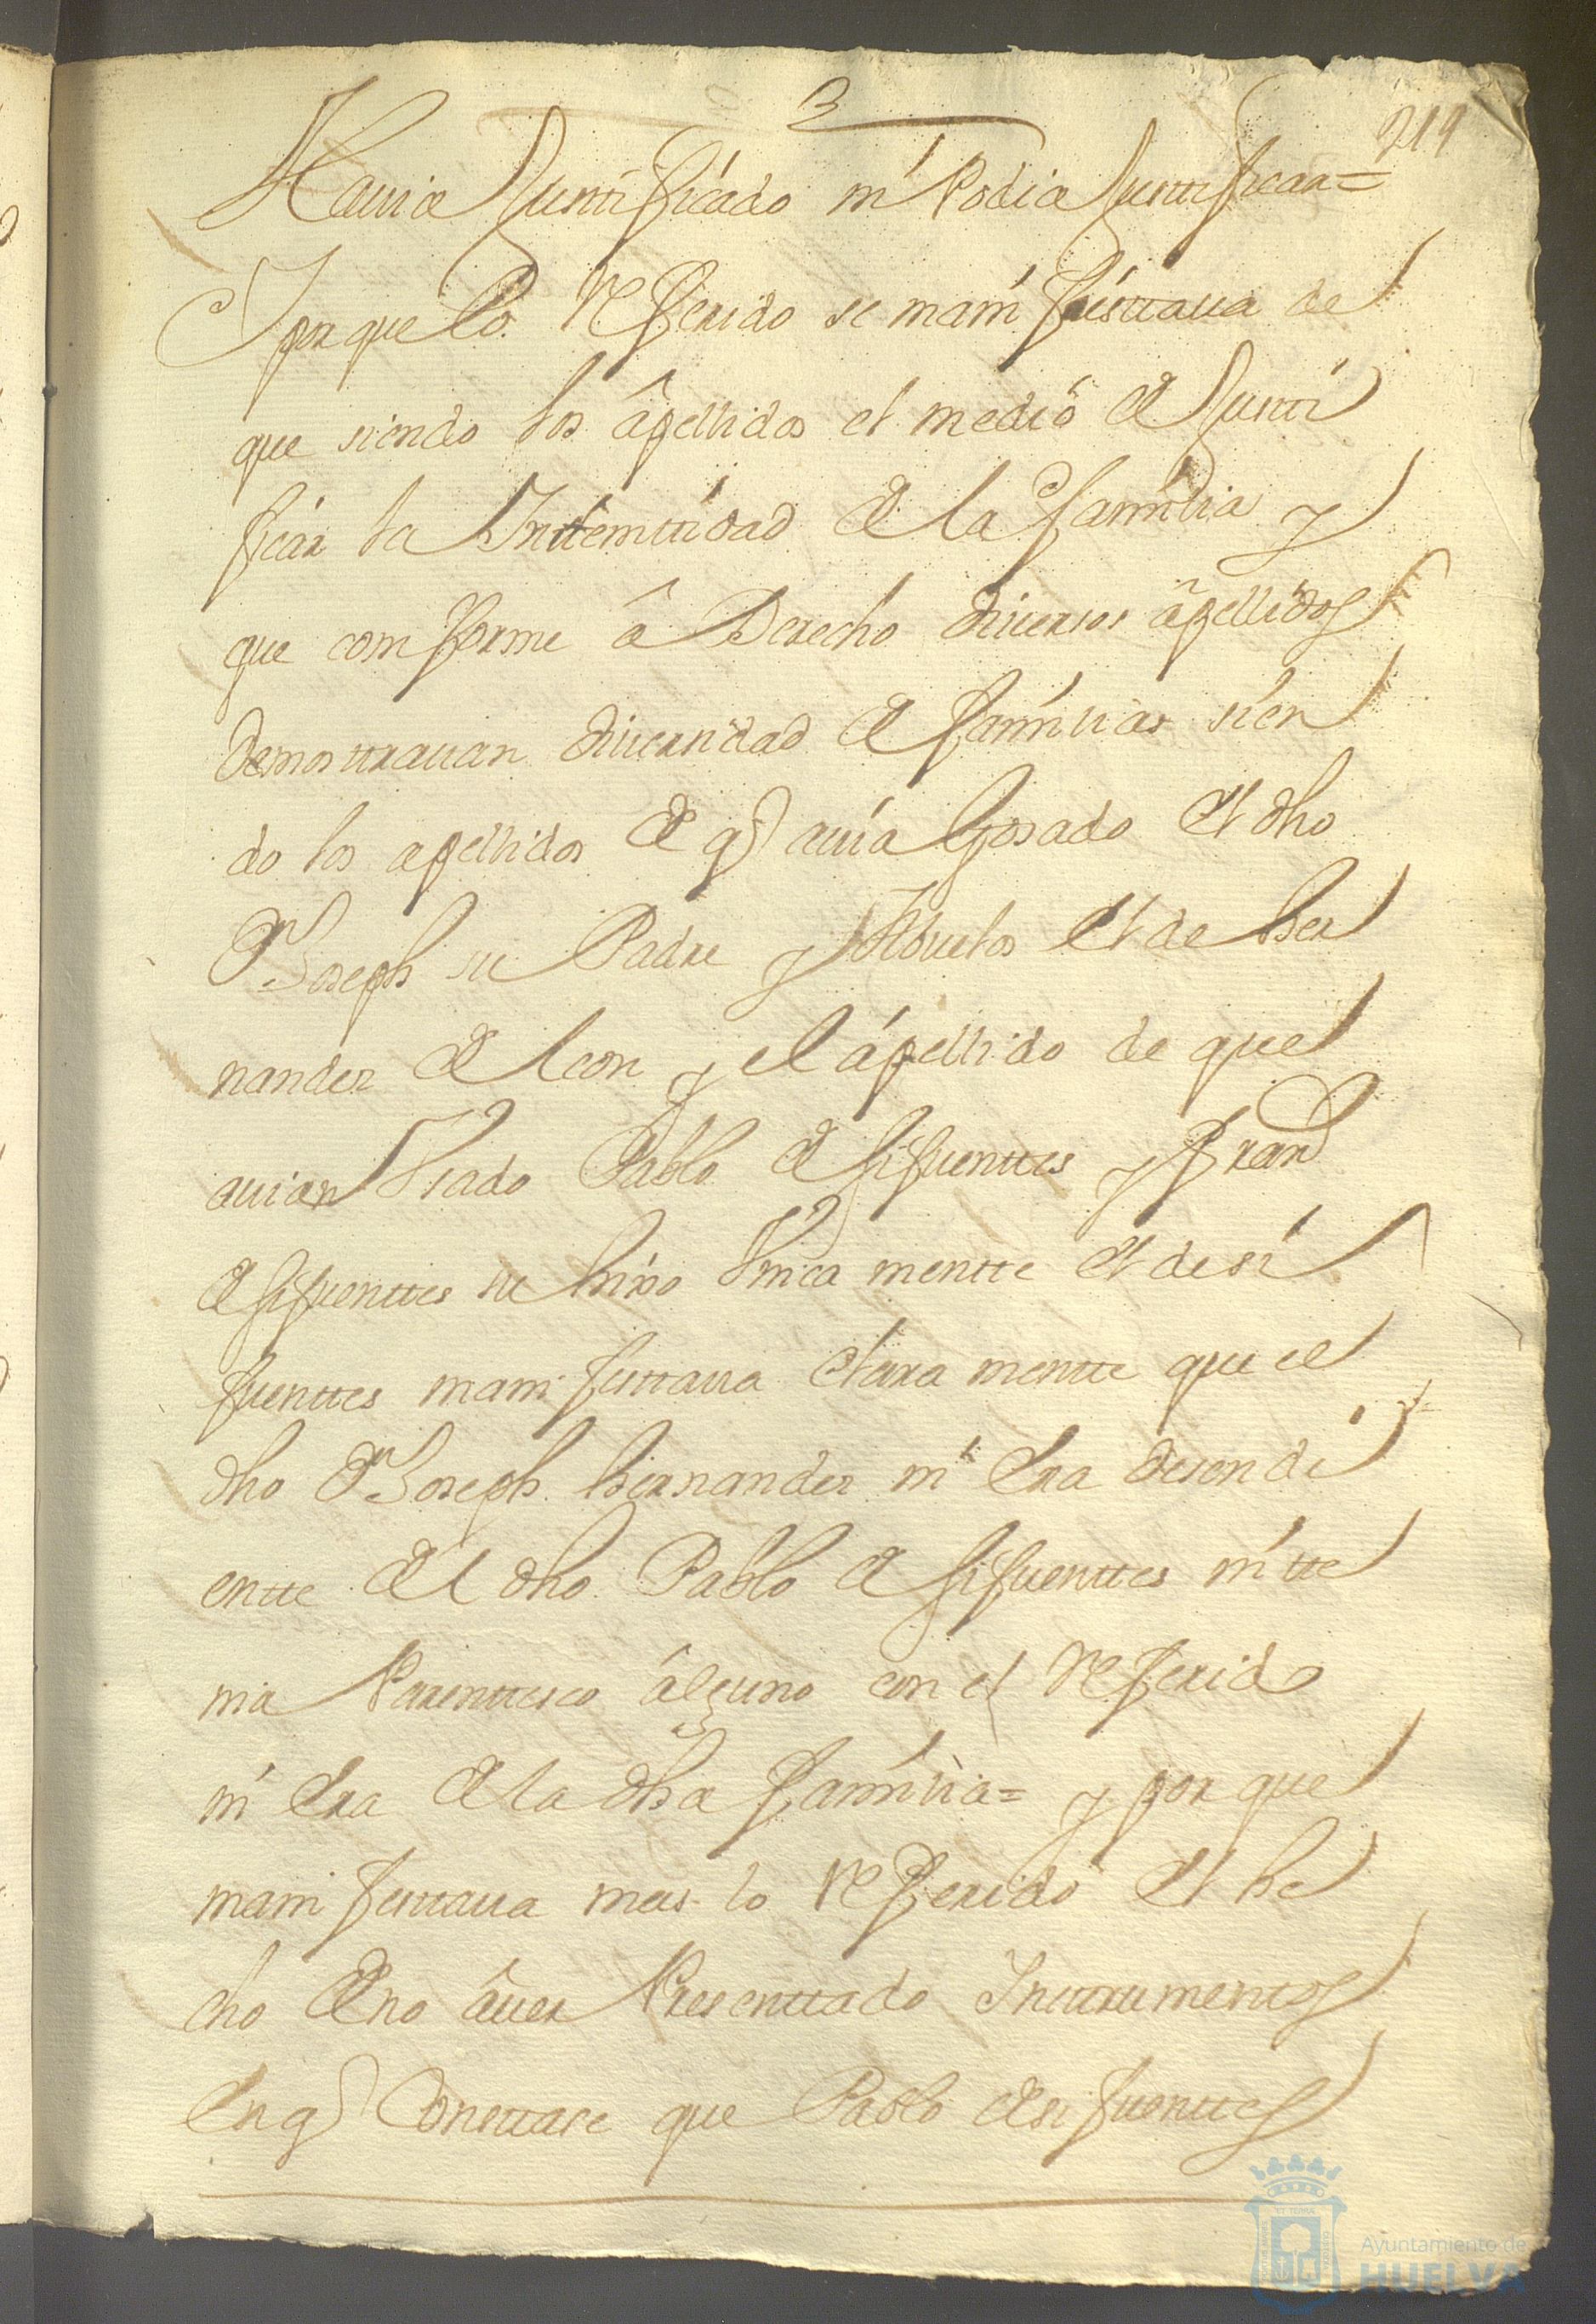 3
219
Hauia Justificado ni Podia Justificar=
Y porque lo referido se manifestaua de
que siendo los apellidos el medio de Justi
ficar la Indemtidad de la familia y
que comforme â Derecho diuersos apellidos
demostrauan diuersidad de familias sien
do los apellidos de q auia Gosado el dho
Joseph su Padre y Abuelos el de her
nandes de leon y el apellido de que
auian Vsado Pablo de sifuenttes y Fran
de sifuenttes su hixo Vnica mentte el de si
fuenttes manifestaua clara mentte que el
dho Joseph hernandes ni Era desendi
entte del dho Pablo de sifuenttes ni tte
nia Parenttesco alguno con el referido
ni Era de la dha familia= y por que
manifestaua mas lo referido el he
cho de no âuer Presenttado Insttrumentos
En q Consttase que Pablo de sifuenttes
Ayuntamiento de
HUELVA